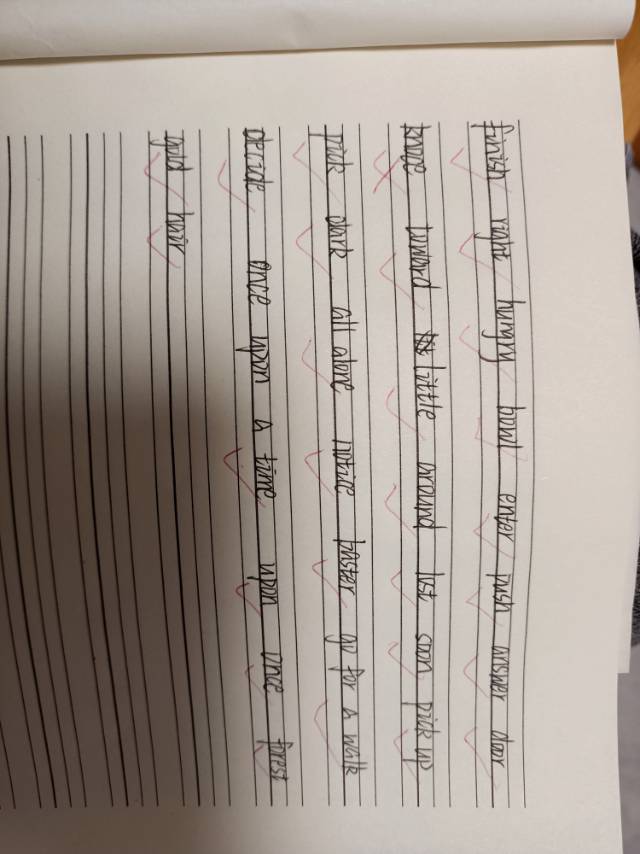 finish right hungry bowl enter push answer door
knoge toward little around lost soon pick up
pick dark all alone notice paster go for a walk
decide once upon a time upon once forest
gold hair